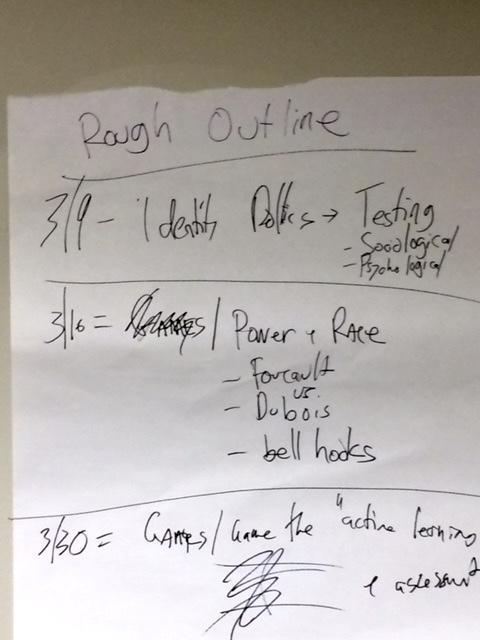 Rough Outline
3/9 - Identity Politics → Testing
- Sociological
- Psychological
3/16 = / Power + Race
- Foucault
vs.
- Dubois
- bell hooks
3/30 = Games / Game the "active learning
+